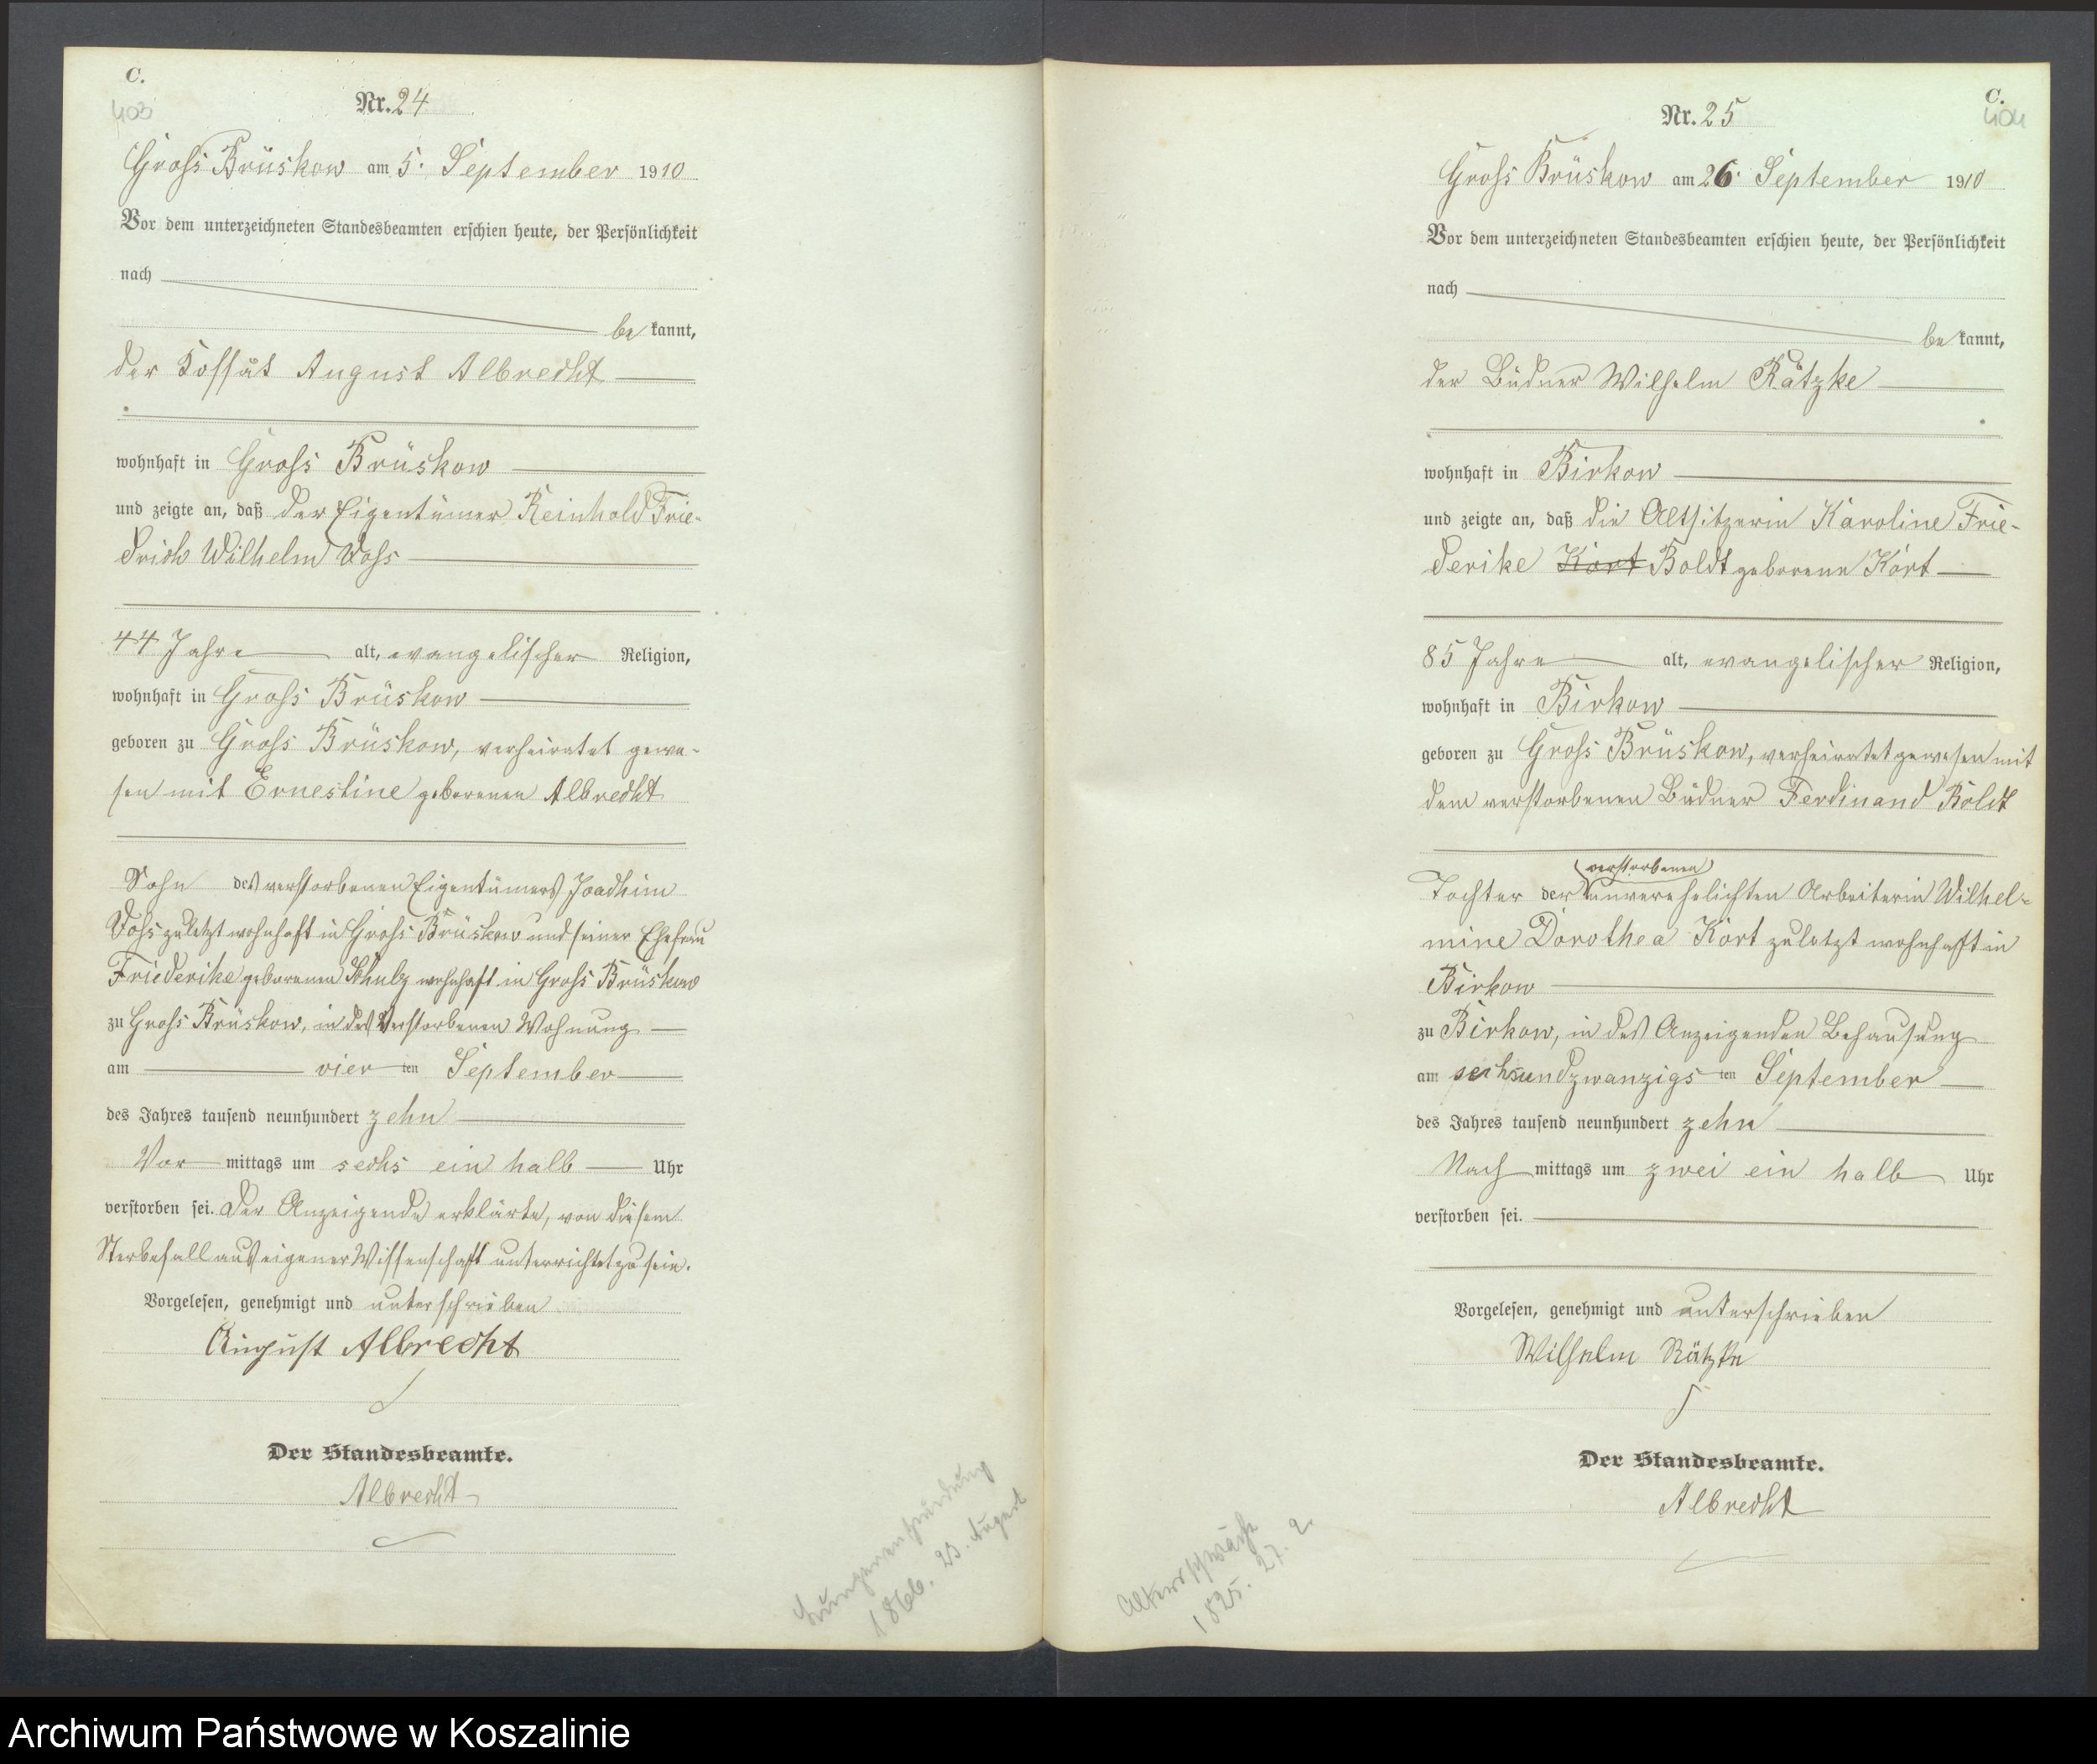 C.
403
Nr. 24
Gross Brüskow am 5. September 1910
Vor dem unterzeichneten Standesbeamten erschien heute, der Persönlichkeit
nach
be kannt,
der Kossät August Albrecht
wohnhaft in Gross Brüskow
und zeigte an, daß der Eigentümer Reinhold Frie-
drich Wilhelm Voss
44 Jahre alt, evangelischer Religion,
wohnhaft in Gross Brüskow
geboren zu Gross Brüskow, verheiratet gewe-
sen mit Ernestine geborenen Albrecht
Sohn des verstorbenen Eigentümers Joachim
Voss zuletzt wohnhaft in Gross Brüskow und seiner Ehefrau
Friederike geborenen Schulz wohnhaft in Gross Brüskow
zu Gross Brüskow, in des Verstorbenen Wohnung
am vier ten September
des Jahres tausend neunhundert zehn
Vor mittags um sechs ein halb Uhr
verstorben sei. Der Anzeigende erklärte, von diesem
Sterbefall aus eigener Wissenschaft unterrichtet zu sein.
Vorgelesen, genehmigt und unterschrieben
August Albrecht
Der Standesbeamte.
Albrecht
Lungenentzündung
1866. 23. August
C.
404
Nr. 25
Gross Brüskow am 26. September 1910
Vor dem unterzeichneten Standesbeamten erschien heute, der Persönlichkeit
nach
be kannt,
der Büdner Wilhelm Rätzke
wohnhaft in Birkow
und zeigte an, daß die Altsitzerin Karoline Frie-
derike Kort Boldt geborene Kort
85 Jahre alt, evangelischer Religion,
wohnhaft in Birkow
geboren zu Gross Brüskow, verheiratet gewesen mit
dem verstorbenen Büdner Ferdinand Boldt
verstorbenen
Tochter der unverehelichten Arbeiterin Wilhel-
mine Dorothea Kort zuletzt wohnhaft in
Birkow
zu Birkow, in des Anzeigenden Behausung
am sechsundzwanzigs ten September
des Jahres tausend neunhundert zehn
Nach mittags um zwei ein halb Uhr
verstorben sei.
Vorgelesen, genehmigt und unterschrieben
Wilhelm Rätzke
Der Standesbeamte.
Albrecht
Altersschwäche
1825. 27. 2.
Archiwum Państwowe w Koszalinie